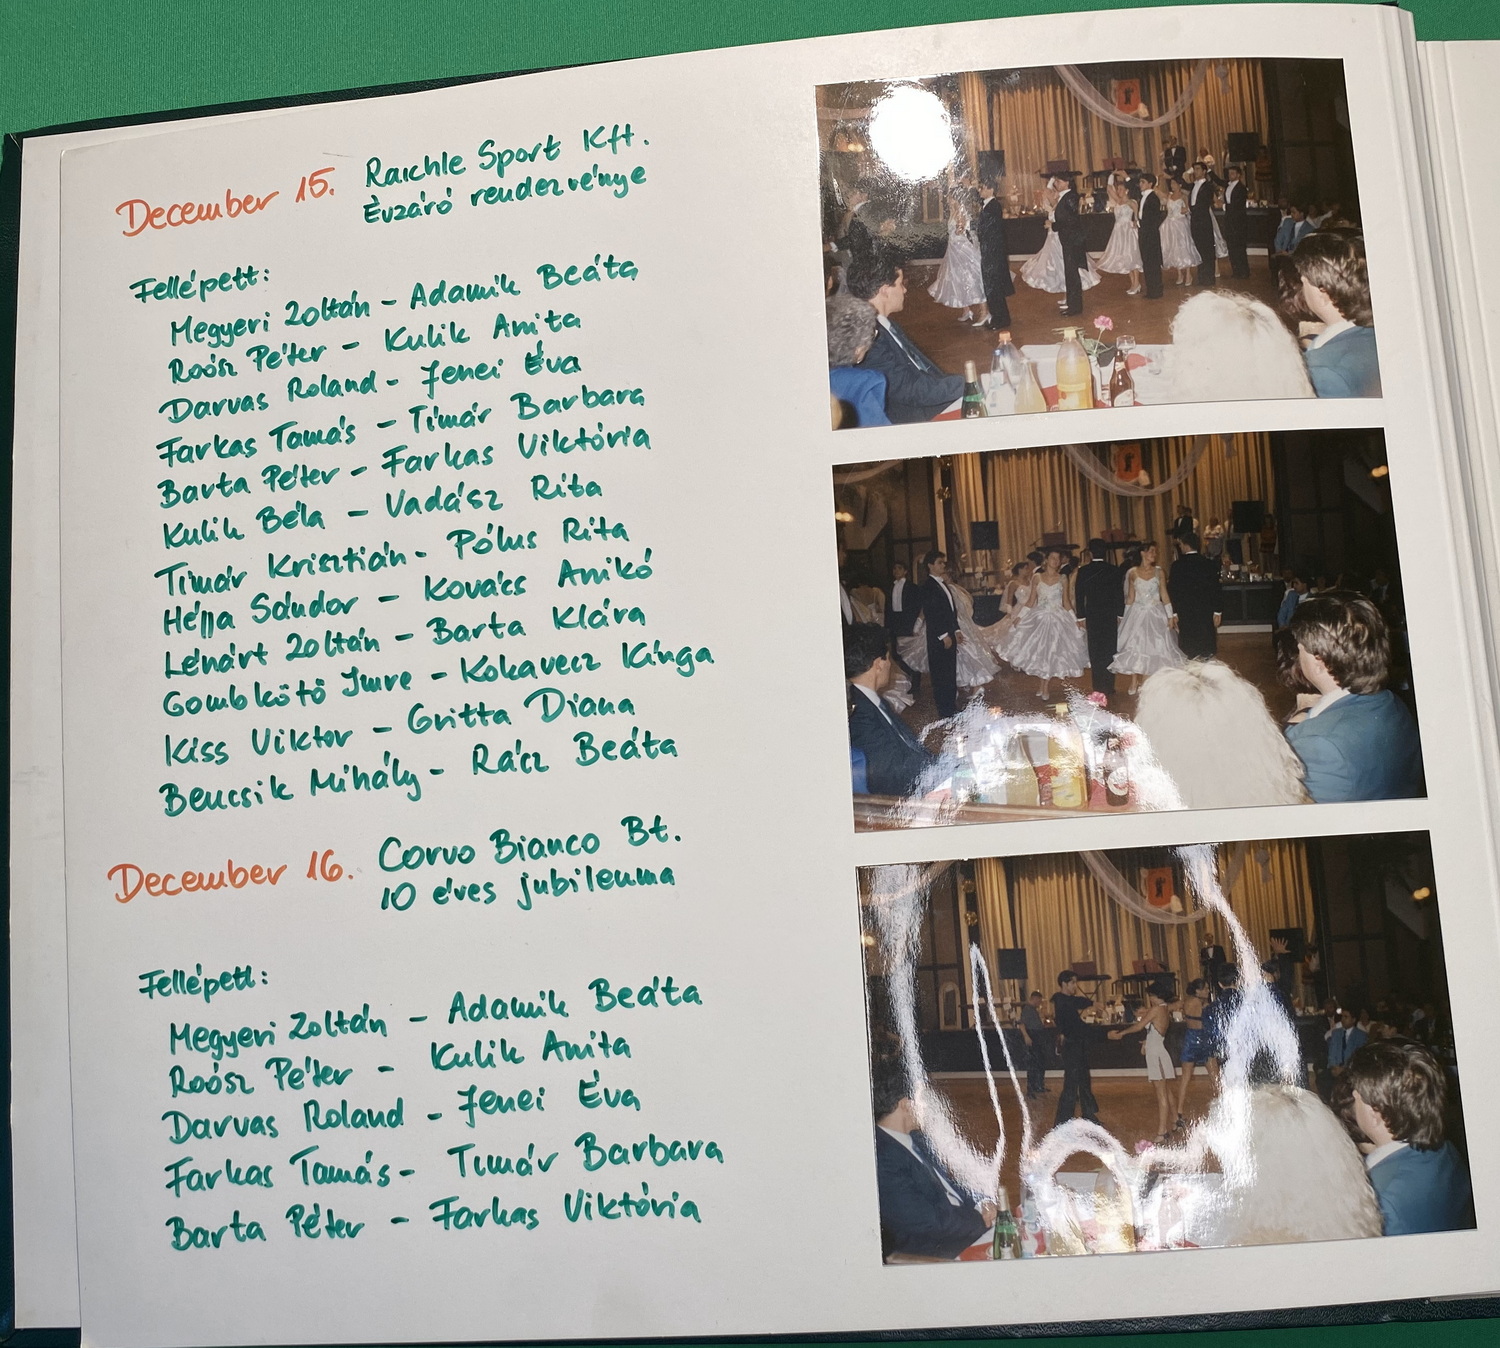 December 15. Raichle Sport Kft.
Évzáró rendezvénye
Fellépett:
Megyeri Zoltán - Adamik Beáta
Roósz Péter - Kulik Anita
Darvas Roland - Jenei Éva
Farkas Tamás - Tímár Barbara
Barta Péter - Farkas Viktória
Kulik Béla - Vadász Rita
Tímár Krisztián - Pólus Rita
Héjja Sándor - Kovács Anikó
Lénárt Zoltán - Barta Klára
Gombkötö Imre - Kokavecz Kinga
Kiss Viktor - Gritta Diana
Bencsik Mihály - Rácz Beáta
December 16. Corvo Bianco Bt.
10 éves jubileuma
Fellépett:
Megyeri Zoltán - Adamik Beáta
Roósz Péter - Kulik Anita
Darvas Roland - Jenei Éva
Farkas Tamás - Tímár Barbara
Barta Péter - Farkas Viktória